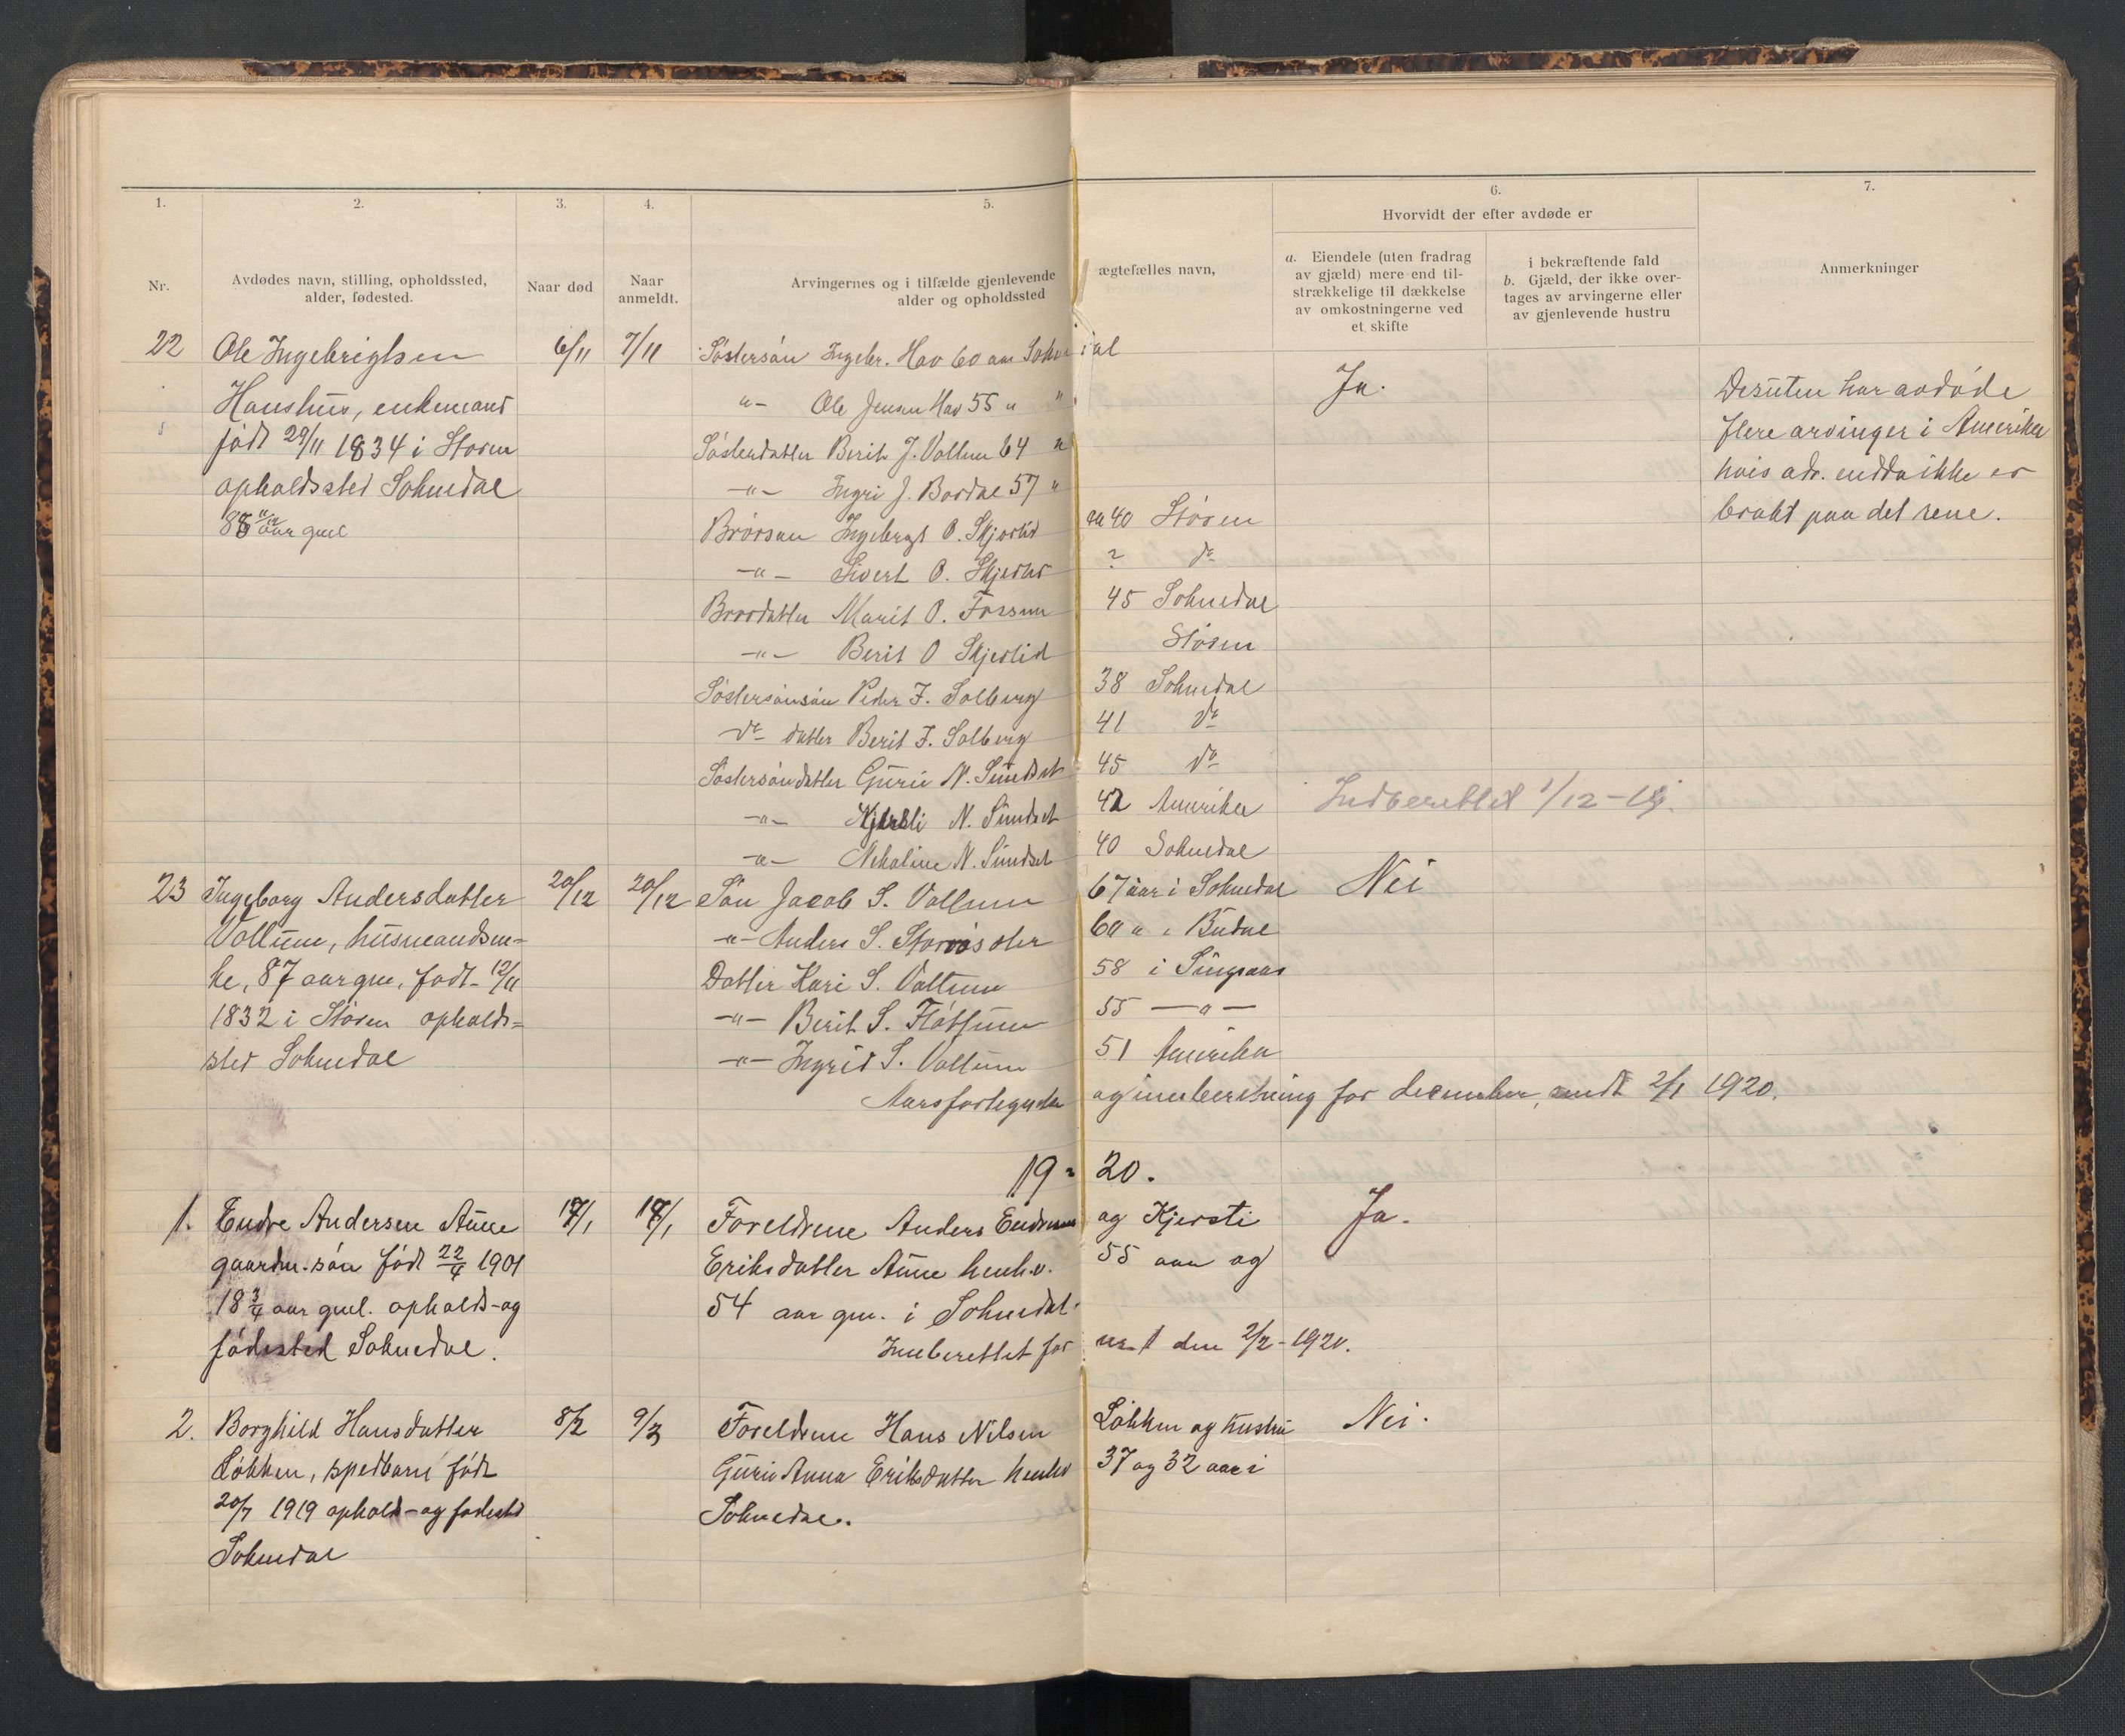 1.
2.
3.
4.
5.
6.
7.
Nr.
Avdødes navn, stilling, opholdssted,
alder, fødested.
Naar død
Naar
anmeldt.
Arvingernes og i tilfælde gjenlevende ægtefælles navn,
alder og opholdssted
Hvorvidt der efter avdøde er
a. Eiendele (uten fradrag
av gjæld) mere end til-
strækkelige til dækkelse
av omkostningerne ved
et skifte
i bekræftende fald
b. Gjæld, der ikke over-
tages av arvingerne eller
av gjenlevende hustru
Anmerkninger
22 Ole Ingebrigtsen 6/11 7/11 Söstersön Ingebr. Hov 60 aar Soknedal
Haushus, enkemand "- Ole Jensen Hov 55 " " Ja. Desuten har avdöde
födt 29/11 1834 i Stören Sösterdatter Berit J. Vollum 64 " flere arvinger i Amerika
opholdssted Soknedal -"- Ingri J. Bordal 57 " hvis adr. endda ikke er
aar gml Brorsøn Ingebrigt O. Skjerlid ca 40 Stören brakt paa det rene.
-"- Sivert O. Skjerlid ? do
Brordatter Marit O. Fossum 45 Soknedal
-"- Berit O Skjerlid Stören
Söstersönsön Peder F. Solberg 38 Soknedal
do datter Berit F. Solberg 41 do
Söstersöndatter Guru N. Sundset 45 do
-"- Kjersti N. Sundset 42 Amerika Indberettet 1/12-19.
-"- Nikoline N. Sundset 40 Soknedal
23 Ingeborg Andersdatter 20/12 20/12 Sön Jacob S. Vollum 67 aar i Soknedal Nei
Vollum, husmandsen- -"- Anders S. 60 " i Budal
ke, 87 aar gm., födt 12/11 Datter Kari S. Vollum 58 i Singsaas
1832 i Stören opholds- -"- Berit S. Flöttum 55 -"-
sted Soknedal -"- Ingrid S. Vollum 51 Amerika
Aarsfortegnelse og innberetning for december, sendt 2/1 1920.
19-20.
1. Endre Andersen Aune 17/1 18/1 Foreldrene Anders Endresen og Kjersti Ja.
gaardm. sön födt 22/4 1901 Eriksdatter Aune henh.v. 55 aar og
18 3/4 aar gml. opholds-og 54 aar gm. i Soknedal.
födested Soknedal. Innberettet for den 2/2-1920.
2. Borghild Hansdatter 8/2 9/3 Foreldrene Hans Nilsen Lökken og hustru Nei.
Lökken, spedbarn födt Guru Anna Eriksdatter henhv 37 og 32 aar i
20/7 1919 ophold-og fødested Soknedal.
Soknedal